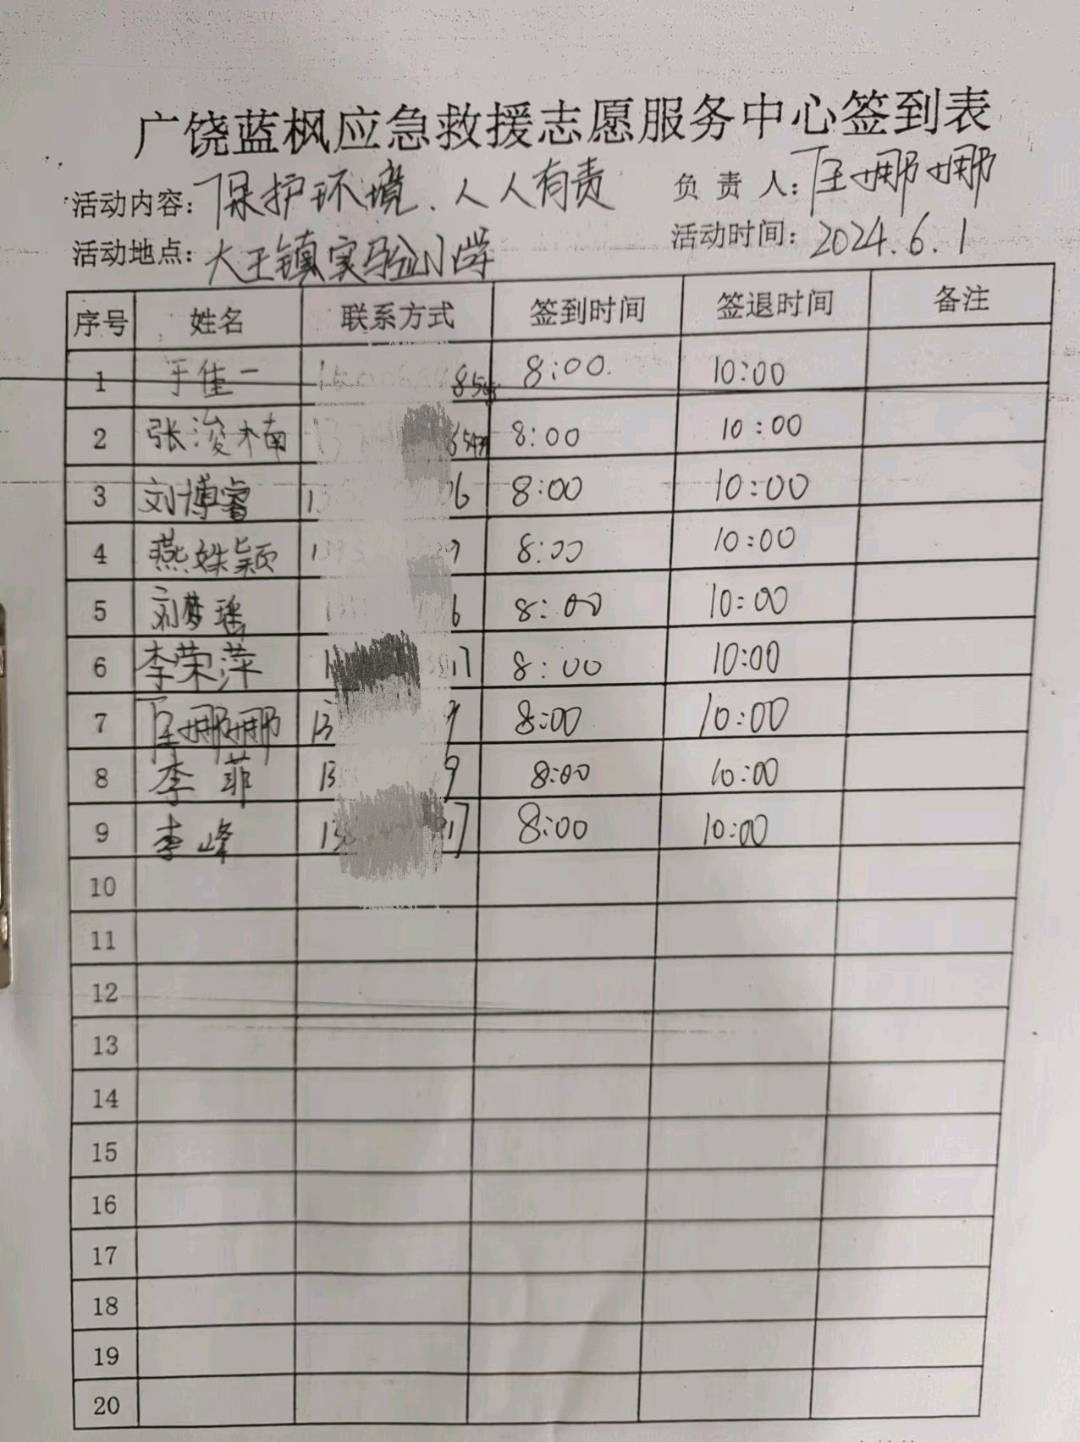 广饶蓝枫应急救援志愿服务中心签到表
活动内容：保护环境、人人有责 负责人：任娜娜
活动地点：大王镇实验小学 活动时间：2024.6.1
序号 姓名 联系方式 签到时间 签退时间 备注
1 于佳一 8:00 10:00
2 张浚楠 8:00 10:00
3 刘博睿 8:00 10:00
4 燕姝颖 8:00 10:00
5 刘梦瑶 8:00 10:00
6 李荣萍 17 8:00 10:00
7 任娜娜 13 9 8:00 10:00
8 李菲 13 9 8:00 10:00
9 李峰 17 8:00 10:00
10
11
12
13
14
15
16
17
18
19
20